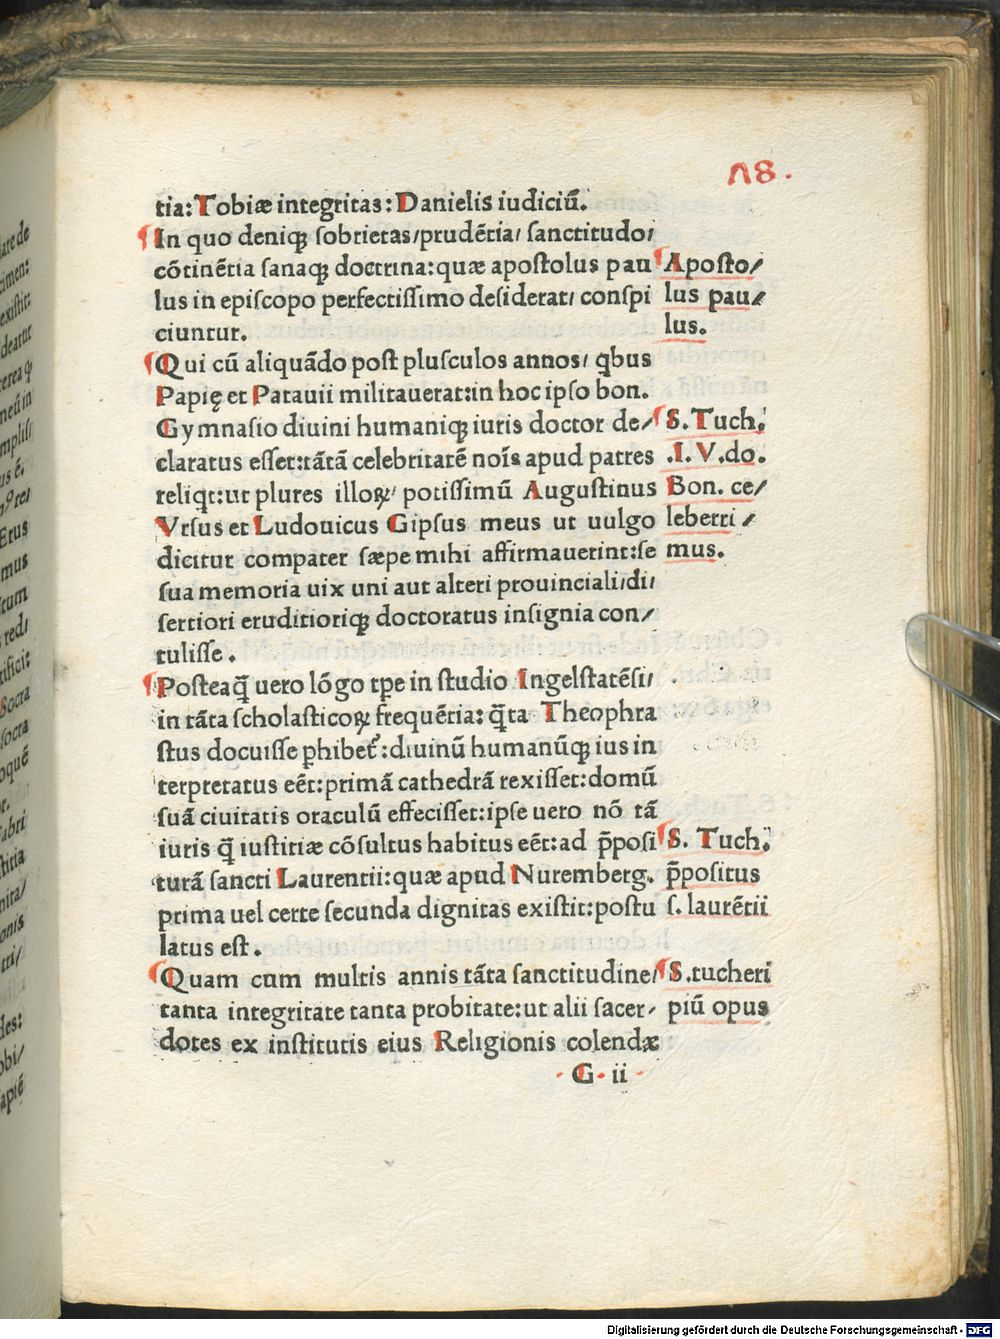 48.
tia: Tobiæ integritas: Danielis iudiciũ.
In quo deniqꝫ sobrietas/prudẽtia/ sanctitudo/
cõtinẽtia sanaqꝫ doctrina: quæ apostolus pau
lus in episcopo perfectissimo desiderat/ conspi
ciuntur.
Qui cũ aliquãdo post plusculos annos/ qͥbus
Papię et Patauii militauerat: in hoc ipso bon.
Gymnasio diuini humaniqꝫ iuris doctor de/
claratus esset: tãtã celebritatẽ noĩs apud patres
reliqͥt: ut plures illoꝝ/ potissimũ Augustinus
Vrsus et Ludouicus Gipsus meus ut uulgo
dicitur compater sæpe mihi affirmauerint: se
sua memoria uix uni aut alteri prouinciali/di/
sertiori eruditioriqꝫ doctoratus insignia con/
tulisse.
Posteaq̃ uero lõgo tꝑe in studio Ingelstatẽsi/
in tãta scholasticoꝝ frequẽtia: q̃ta Theophra
stus docuisse ꝑhibet᷑: diuinũ humanũqꝫ ius in
terpretatus eẽt: primã cathedrã rexisset: domũ
suã ciuitatis oraculũ effecisset: ipse uero nõ tã
iuris q̃ iustitiæ cõsultus habitus eẽt: ad p̃posi
turã sancti Laurentii: quæ apud Nuremberg.
prima uel certe secunda dignitas existit: postu
latus est.
Quam cum multis annis tãta sanctitudine/
tanta integritate tanta probitate: ut alii sacer/
dotes ex institutis eius Religionis colendæ
G ii
Aposto/
lus pau/
lus.
S. Tuch.
.I. V. do.
Bon. ce/
leberri/
mus.
S. Tuch.
p̃positus
s. laurẽtii
S. tucheri
piũ opus
Digitalisierung gefördert durch die Deutsche Forschungsgemeinschaft - DFG